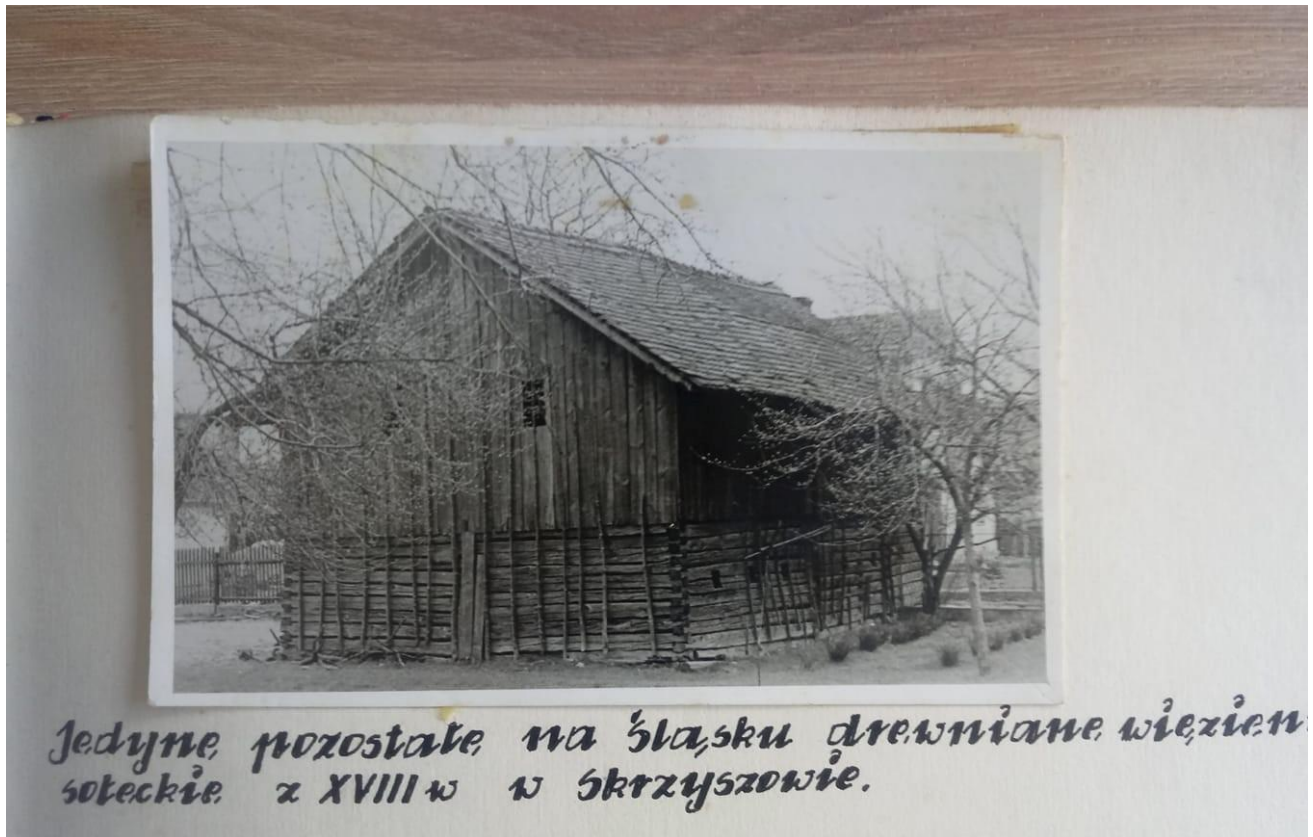 Jedyne pozostałe na Śląsku drewniane więzien
sołeckie z XVIII w w Skrzyszowie.